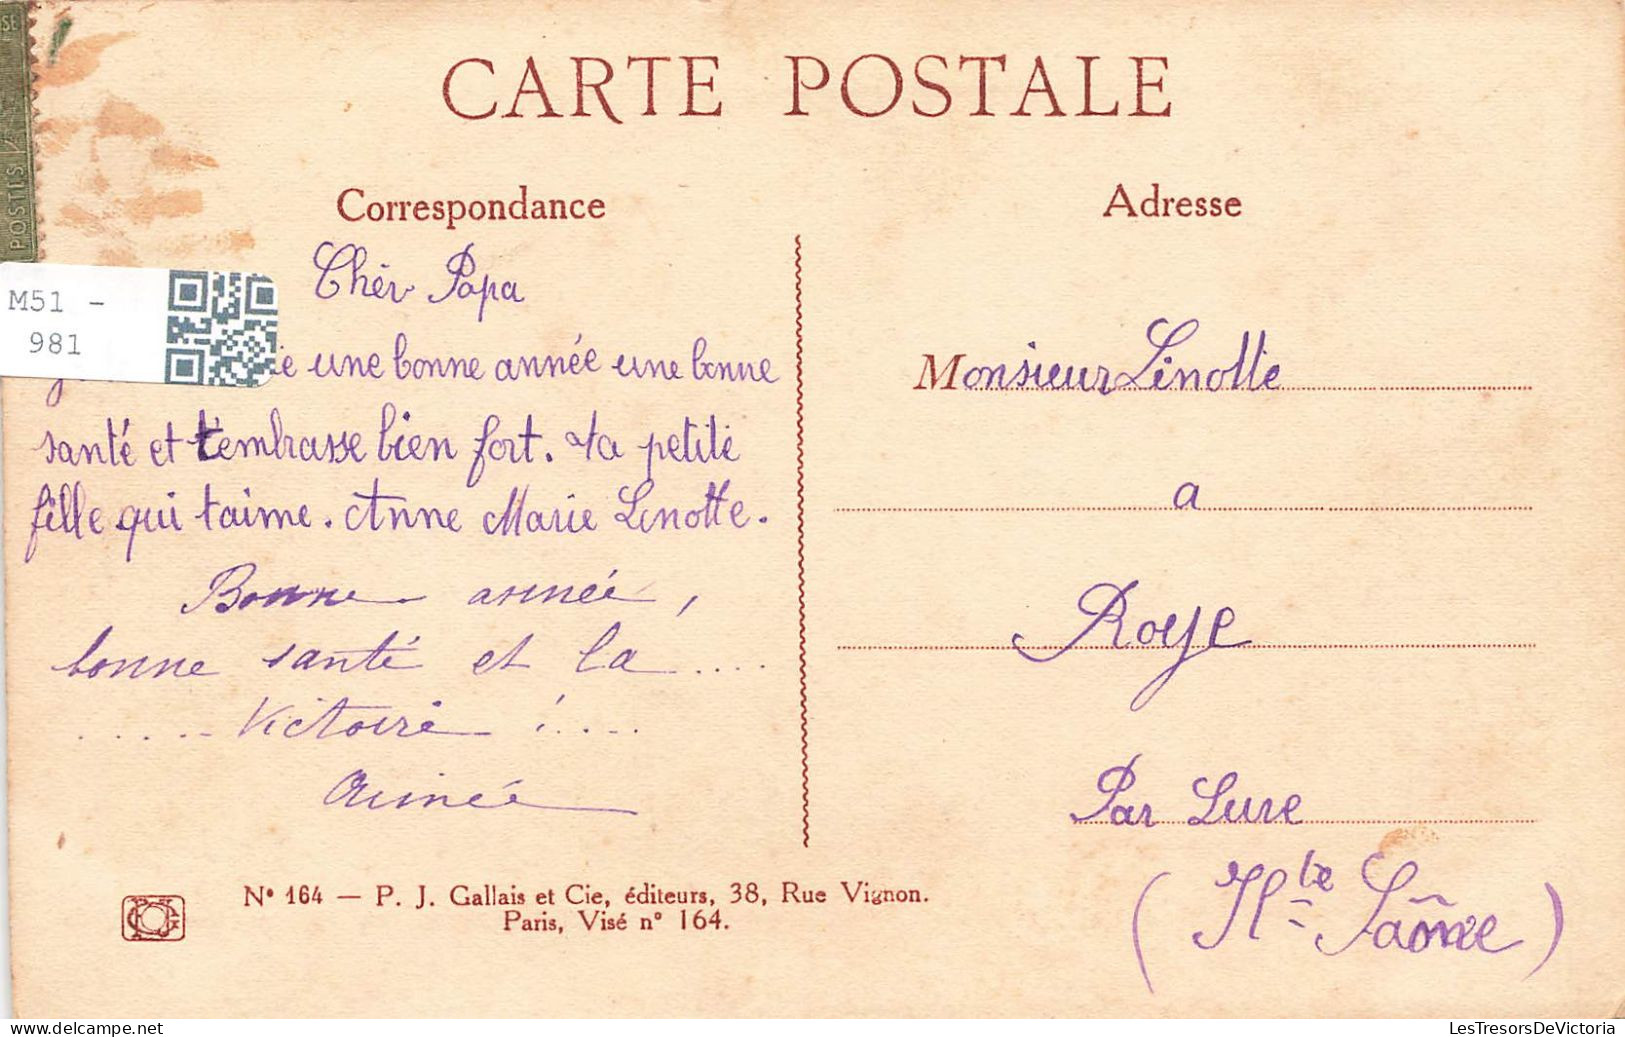 CARTE POSTALE
Correspondance
Adresse
POSTES
M51 -
981
Chèr Papa
une bonne année une bonne
santé et t'embrasse bien fort. ta petite
fille qui t'aime. Anne Marie Linotte.
Bonne année,
bonne santé et la ....
..... Victoire ! ....
Aimée
Monsieur Linotte
a
Roye
Par Lure
(Hte Saône)
N° 164 — P. J. Gallais et Cie, éditeurs, 38, Rue Vignon.
Paris, Visé n° 164.
delcampe.net
LesTresorsDeVictoria